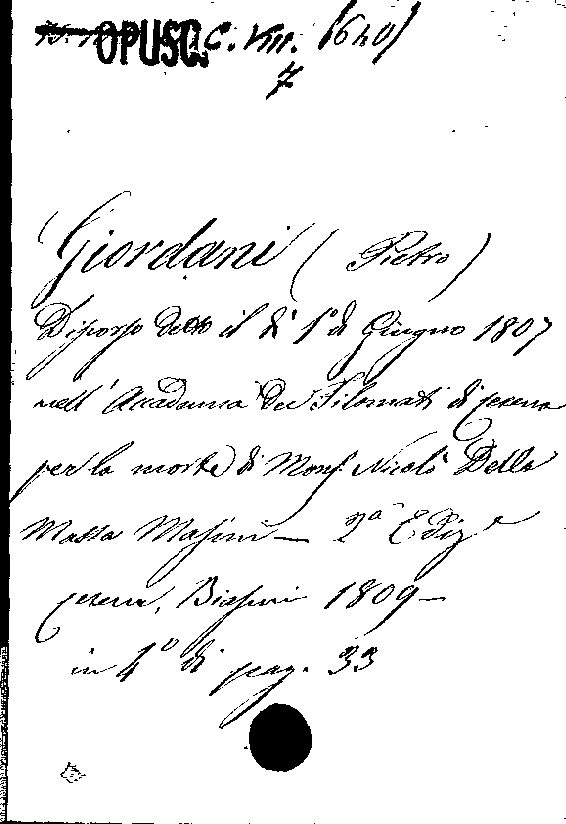 OPUSC C. VIII. (640)
7
Giordani (Pietro)
Discorso detto il di 1° di Giugno 1807
nell'Accademia dei Filomati di Cesena
per la morte di Mons. Nicolò Della
Massa Masini — 2ª Edizᵉ
Cesena, Biasini 1809 —
in 4° di pag. 33